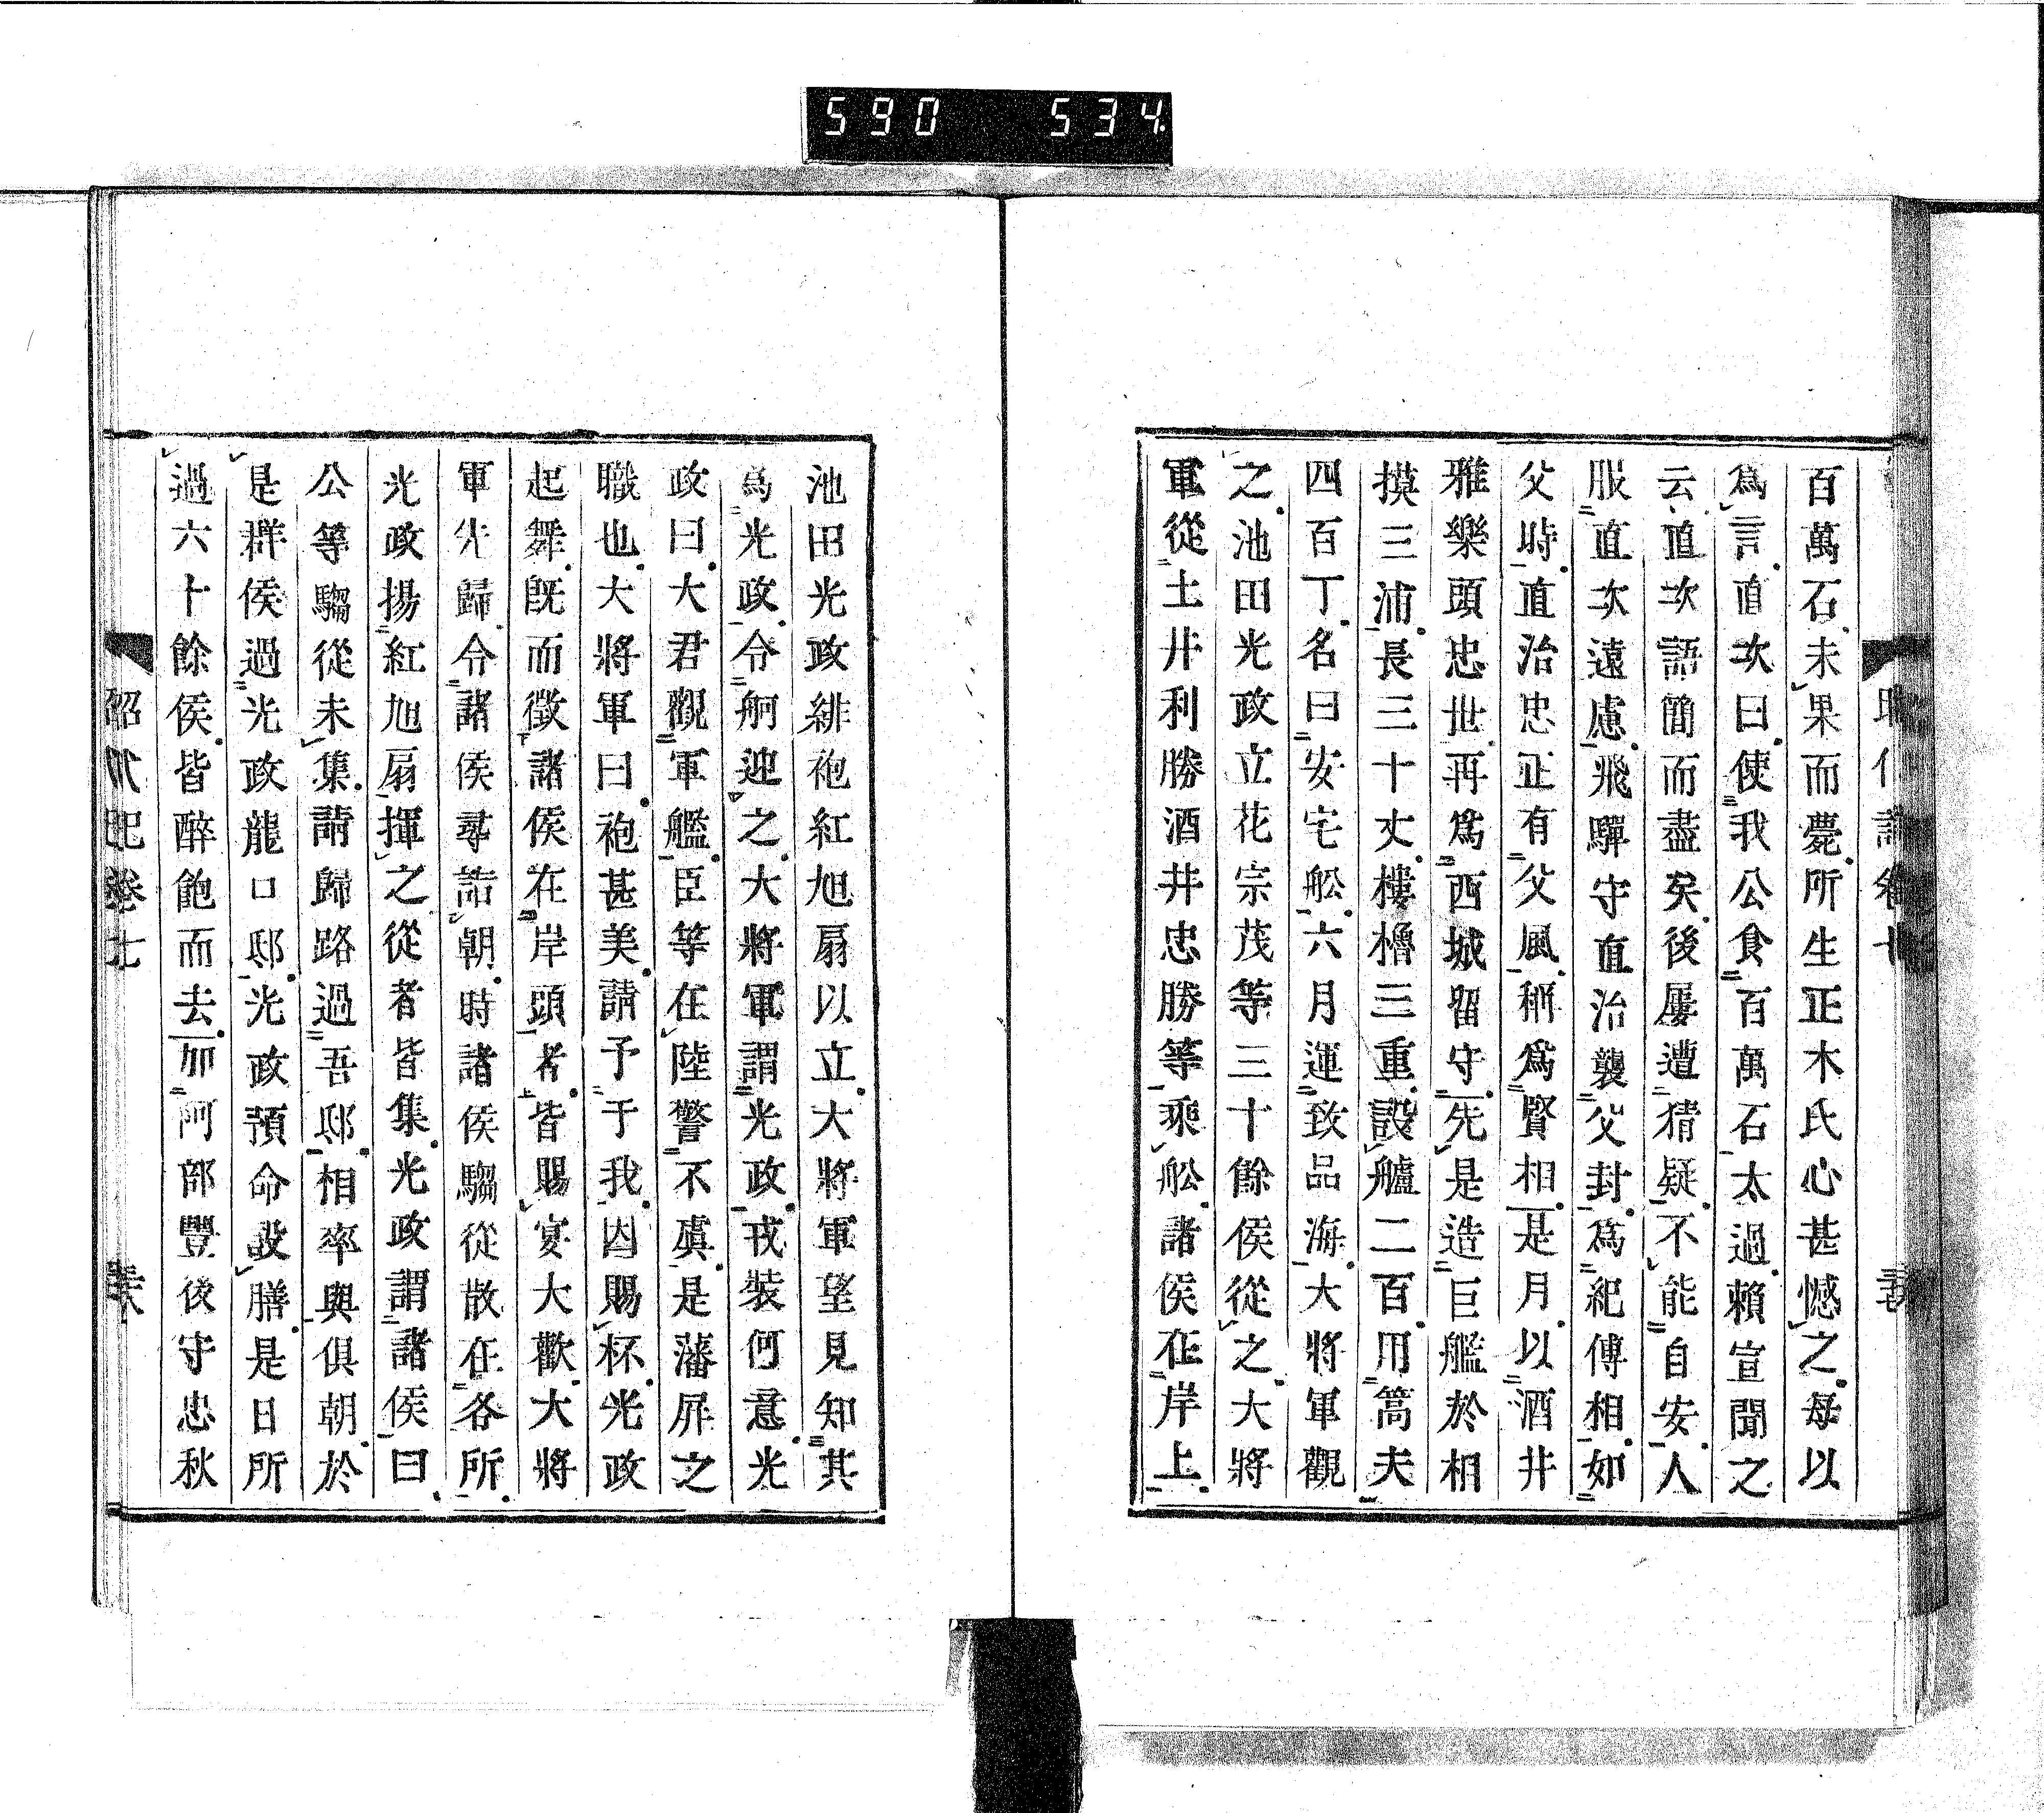 590 534
百萬石未果而薨所生正木氏心甚憾之母以
爲言直次曰使我公食百萬石太過賴宣聞之
云直次語簡而盡矣後屢遭猜疑不能自安人
服直次遠慮飛驒守直治襲父封爲紀傅相如
父時直治忠正有父風稱爲賢相是月以酒井
雅樂頭忠世再爲西城留守先是造巨艦於相
摸三浦長三十丈樓櫓三重設艫二百用篙夫
四百丁名曰安宅舩六月運致品海大將軍觀
之池田光政立花宗茂等三十餘侯從之大將
軍從土井利勝酒井忠勝等乘舩諸侯在岸上
池田光政緋袍紅旭扇以立大將軍望見知其
爲光政令舸迎之大將軍謂光政戎裝何意光
政曰大君觀軍艦臣等在陸警不虞是藩屏之
職也大將軍曰袍甚美請予于我因賜杯光政
起舞旣而徵諸侯在岸頭者皆賜宴大歡大將
軍先歸令諸侯尋詣朝時諸侯騶從散在各所
光政揚紅旭扇揮之從者皆集光政謂諸侯曰
公等騶從未集請歸路過吾邸相率與俱朝於
是群侯過光政龍口邸光政預命設膳是日所
過六十餘侯皆醉飽而去加阿部豐後守忠秋
昭代記卷七